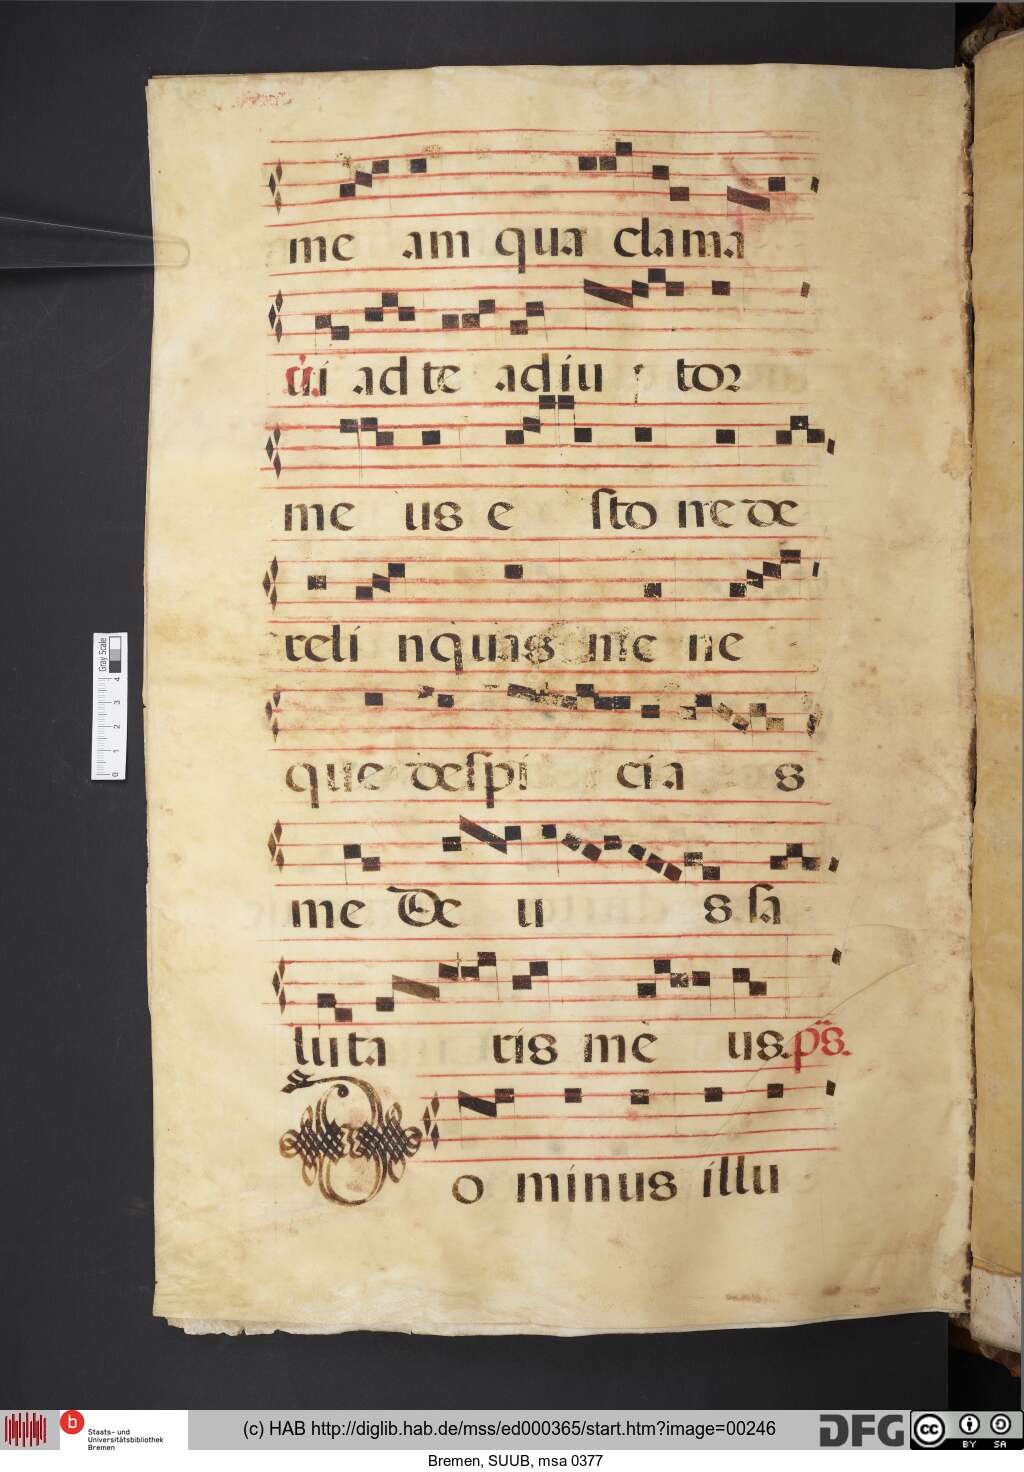 me am qua clama
vi ad te adiu tor
me us e ſto ne de
reli nquas me ne
que deſpi cia s
me De u s ſa
luta ris me us. ps.
Do minus illu
Gray Scale
0 1 2 3 4
b
Staats- und
Universitätsbibliothek
Bremen
(c) HAB http://diglib.hab.de/mss/ed000365/start.htm?image=00246
DFG
cc BY SA
Bremen, SUUB, msa 0377